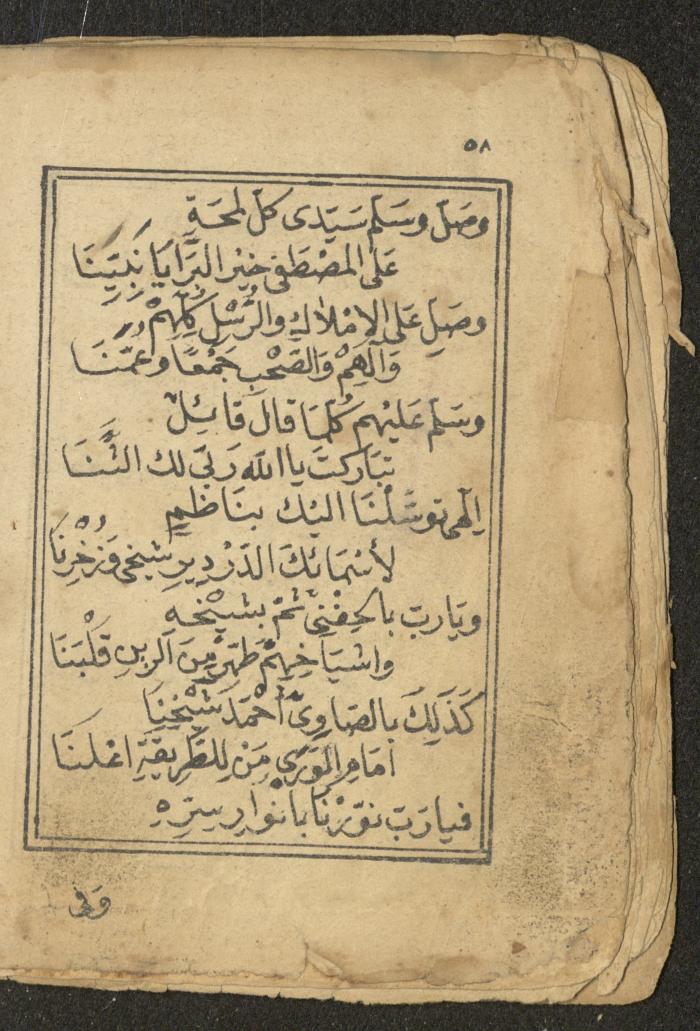 ٥٨
وصَلّ وسَلّم سَيّدى كلّ لمحَةٍ
عَلَى المصْطَفى خيْر البَّرَايَا نَبِيِّنَا
وصَلِ عَلَى الامْلاكِ والرُّسْلِ كلِّهِمْ
وَآلهِمْ وَالصَّحْبِ جَمْعًا وعمّنَا
وسَلّم عَليْهم كُلّمَا قالَ قَائِلٌ
تبَاركتَ يا الله رَبّى لك الثَّنَا
الهى توسَّلْنَا اليْك بنَاظمٍ
لأسْمَائكَ الدَّرْدِيرِ شيخى وَذُخْرِنَا
ويَاربّ بالحِفْنِىّ ثمّ بشيْخهِ
واشيَاخِهِمْ طَهِّرْ مِنَ الرينِ قَلْبَنَا
كَذَلِكَ بالصَاوِىّ أحْمَدَ شَيْخِنَا
امَامِ الوَرَى مَنْ لِلطَّرِيقَةِ اعْلنَا
فيارَبّ نوّرْنَا بأنْوارِ سِرّهِ
وَفى